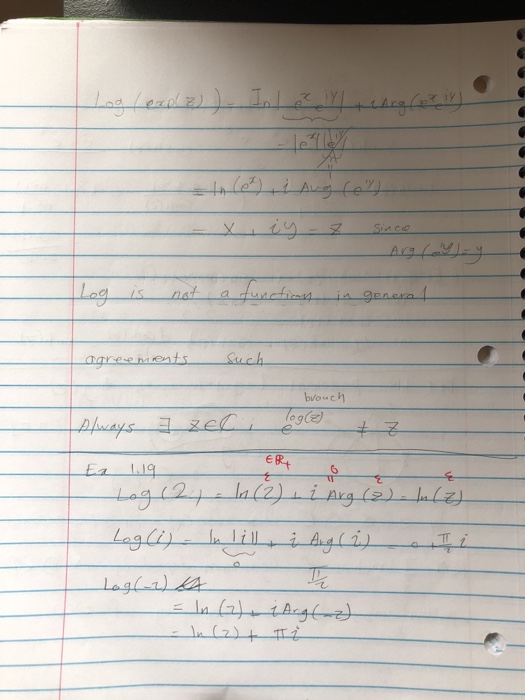 Log (exp(z)) = ln | e^x e^{iy} | + i Arg(e^x e^{iy})
= |e^x| |e^{iy}|
= ln (e^x) + i Arg (e^{iy})
= x + iy = z since
Arg (e^{iy}) = y
Log is not a function in general
agreements such
branch
Always ∃ z∈ℂ, e^{log(z)} ≠ z
Ex 1.19
∈ℝ+
Log (2) = ln(2) + i Arg (2) = ln(2)
0
Log(i) = ln |i| + i Arg(i) = 0 + π/2 i
0 π/2
Log(-2)
= ln(2) + i Arg(-2)
= ln(2) + π i